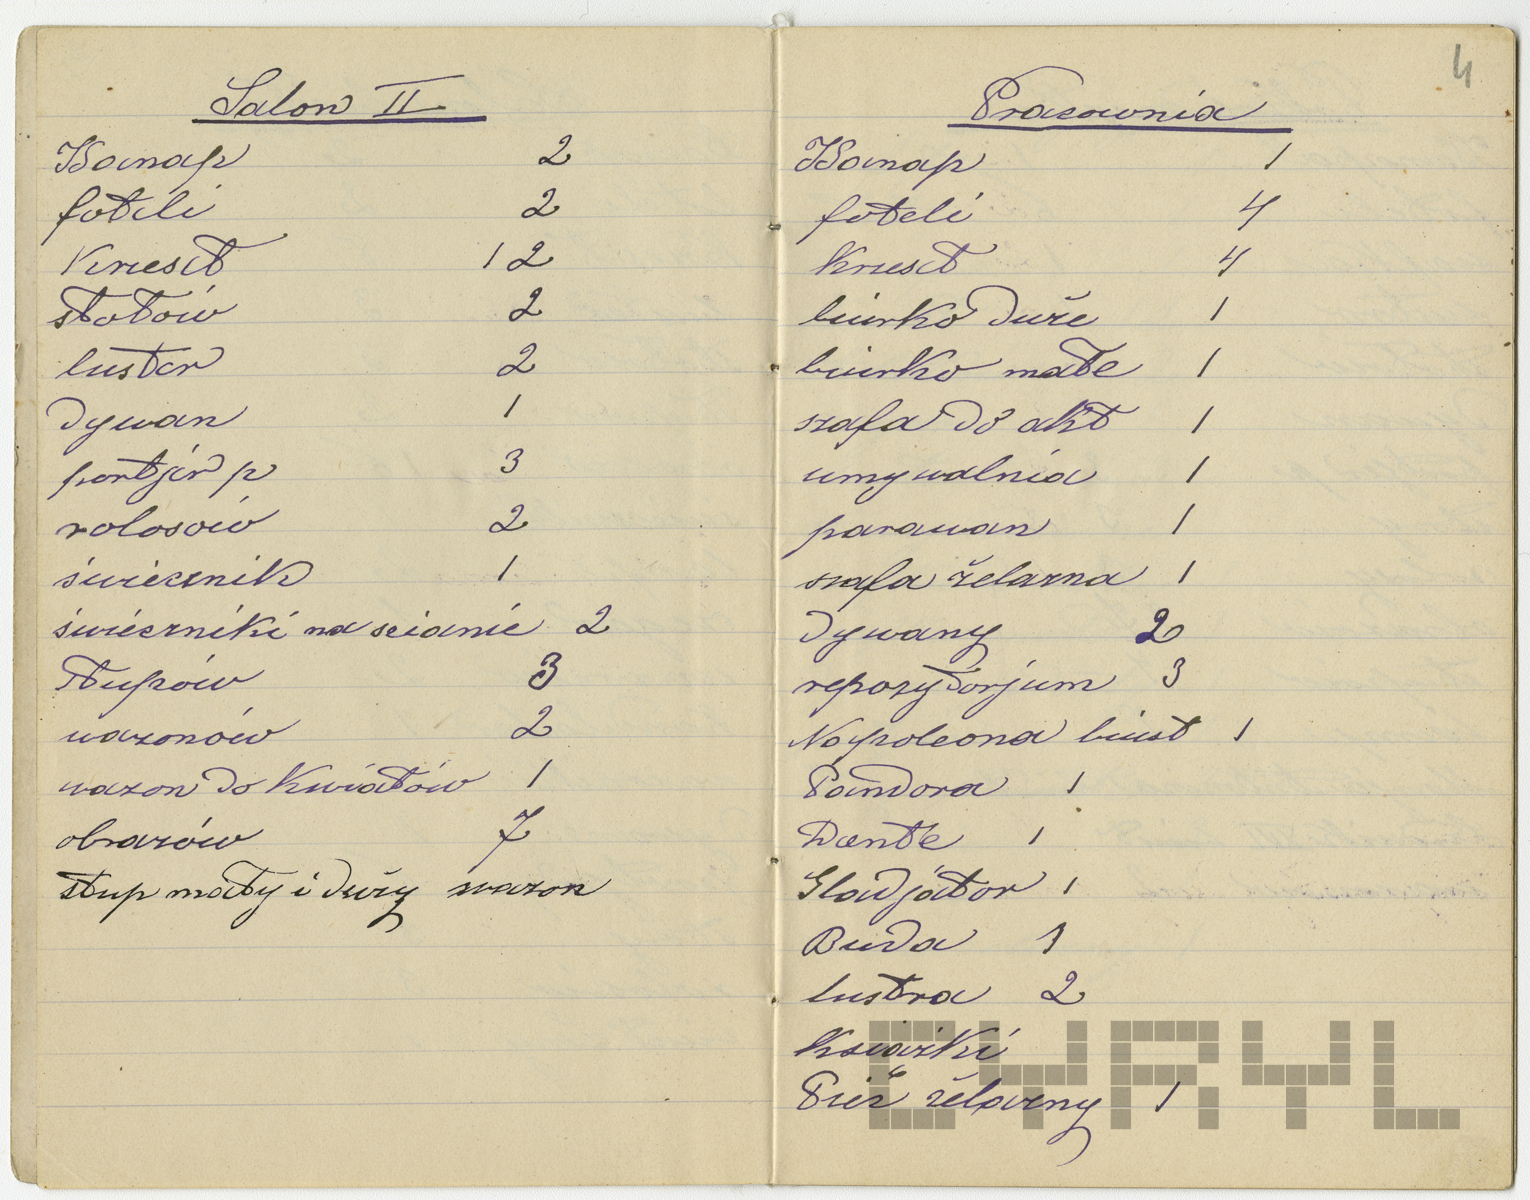 Salon II
Kanap 2
foteli 2
Krzeseł 12
stołów 2
luster 2
dywan 1
portjer p 3
rolosów 2
świecznik 1
świeczniki na scianie 2
słupów 3
wazonów 2
wazon do Kwiatów 1
obrazów 7
słup mały i duży wazon
4
Pracownia
Kanap 1
foteli 4
Krzeseł 4
biurko duże 1
biurko małe 1
szafa do akt 1
umywalnia 1
parawan 1
szafa żelazna 1
dywany 2
repozytorjum 3
Napoleona biust 1
Pandora 1
Dante 1
Gladjator 1
Buda 1
lustra 2
Ksiażki
Piec żelazny 1
CYRYL